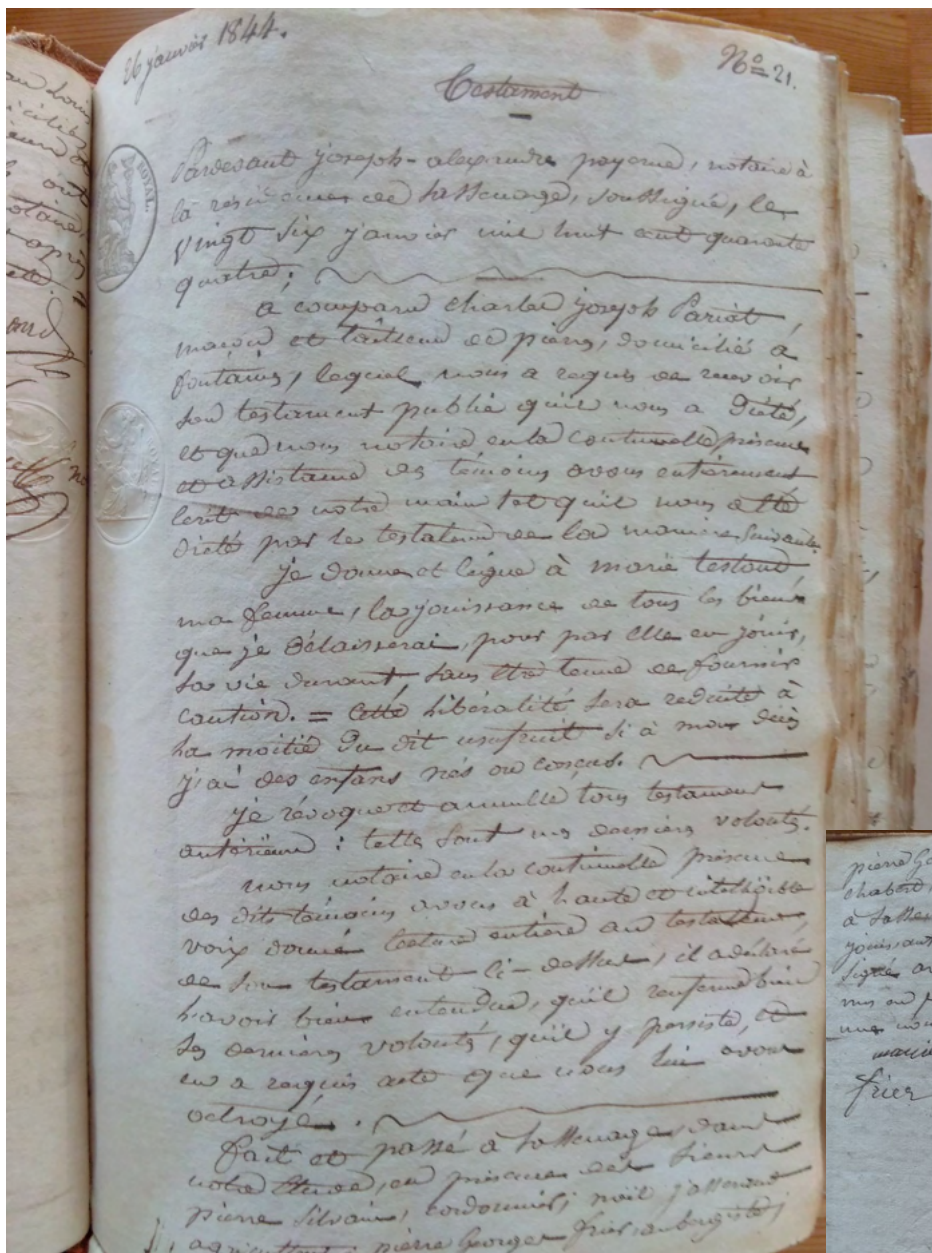 26 janvier 1844.
No 21.
Testament
Pardevant joseph-alexandre payerne, notaire à
la residence de Sassenage, soussigné, le
vingt six janvier mil huit cent quarante
quatre;
a comparu charles joseph Pariot,
maçon et tailleur de pierre, domicilié à
fontaines, lequel nous a requis de recevoir
son testament public qu'il nous a dicté,
et que nous notaire en la continuelle présence
et assistance des témoins avons entièrement
écrit de notre main tel qu'il nous a été
dicté par le testateur de la manière suivante.
je donne et légue à marie testout
ma femme, la jouissance de tous les biens
que je délaisserai, pour par elle en jouir,
sa vie durant, sans etre tenue de fournir
caution. = Cette libéralité sera reduite à
la moitié du dit usufruit si à mon décès
j'ai des enfans nés ou conçus.
je révoque et annulle tous testament
antérieur : telles sont mes dernières volontés.
nous notaire en la continuelle présence
des dits témoins avons à haute et intelligible
voix donné lecture entière au testateur,
de son testament ci-dessus, il a déclaré
l'avoir bien entendue, qu'il renferme bien
ses dernières volontés, qu'il y persiste, et
en a requis acte que nous lui avons
octroyé.
fait et passé à Sassenage, dans
notre étude, en présence des sieurs
pierre Silvain, cordonnier, noël jasserand
agriculteur, pierre Georges frier, aubergiste,
ROYAL.
pierre Ge
chabert,
à Sasse
jouissant
signé av
une
frier